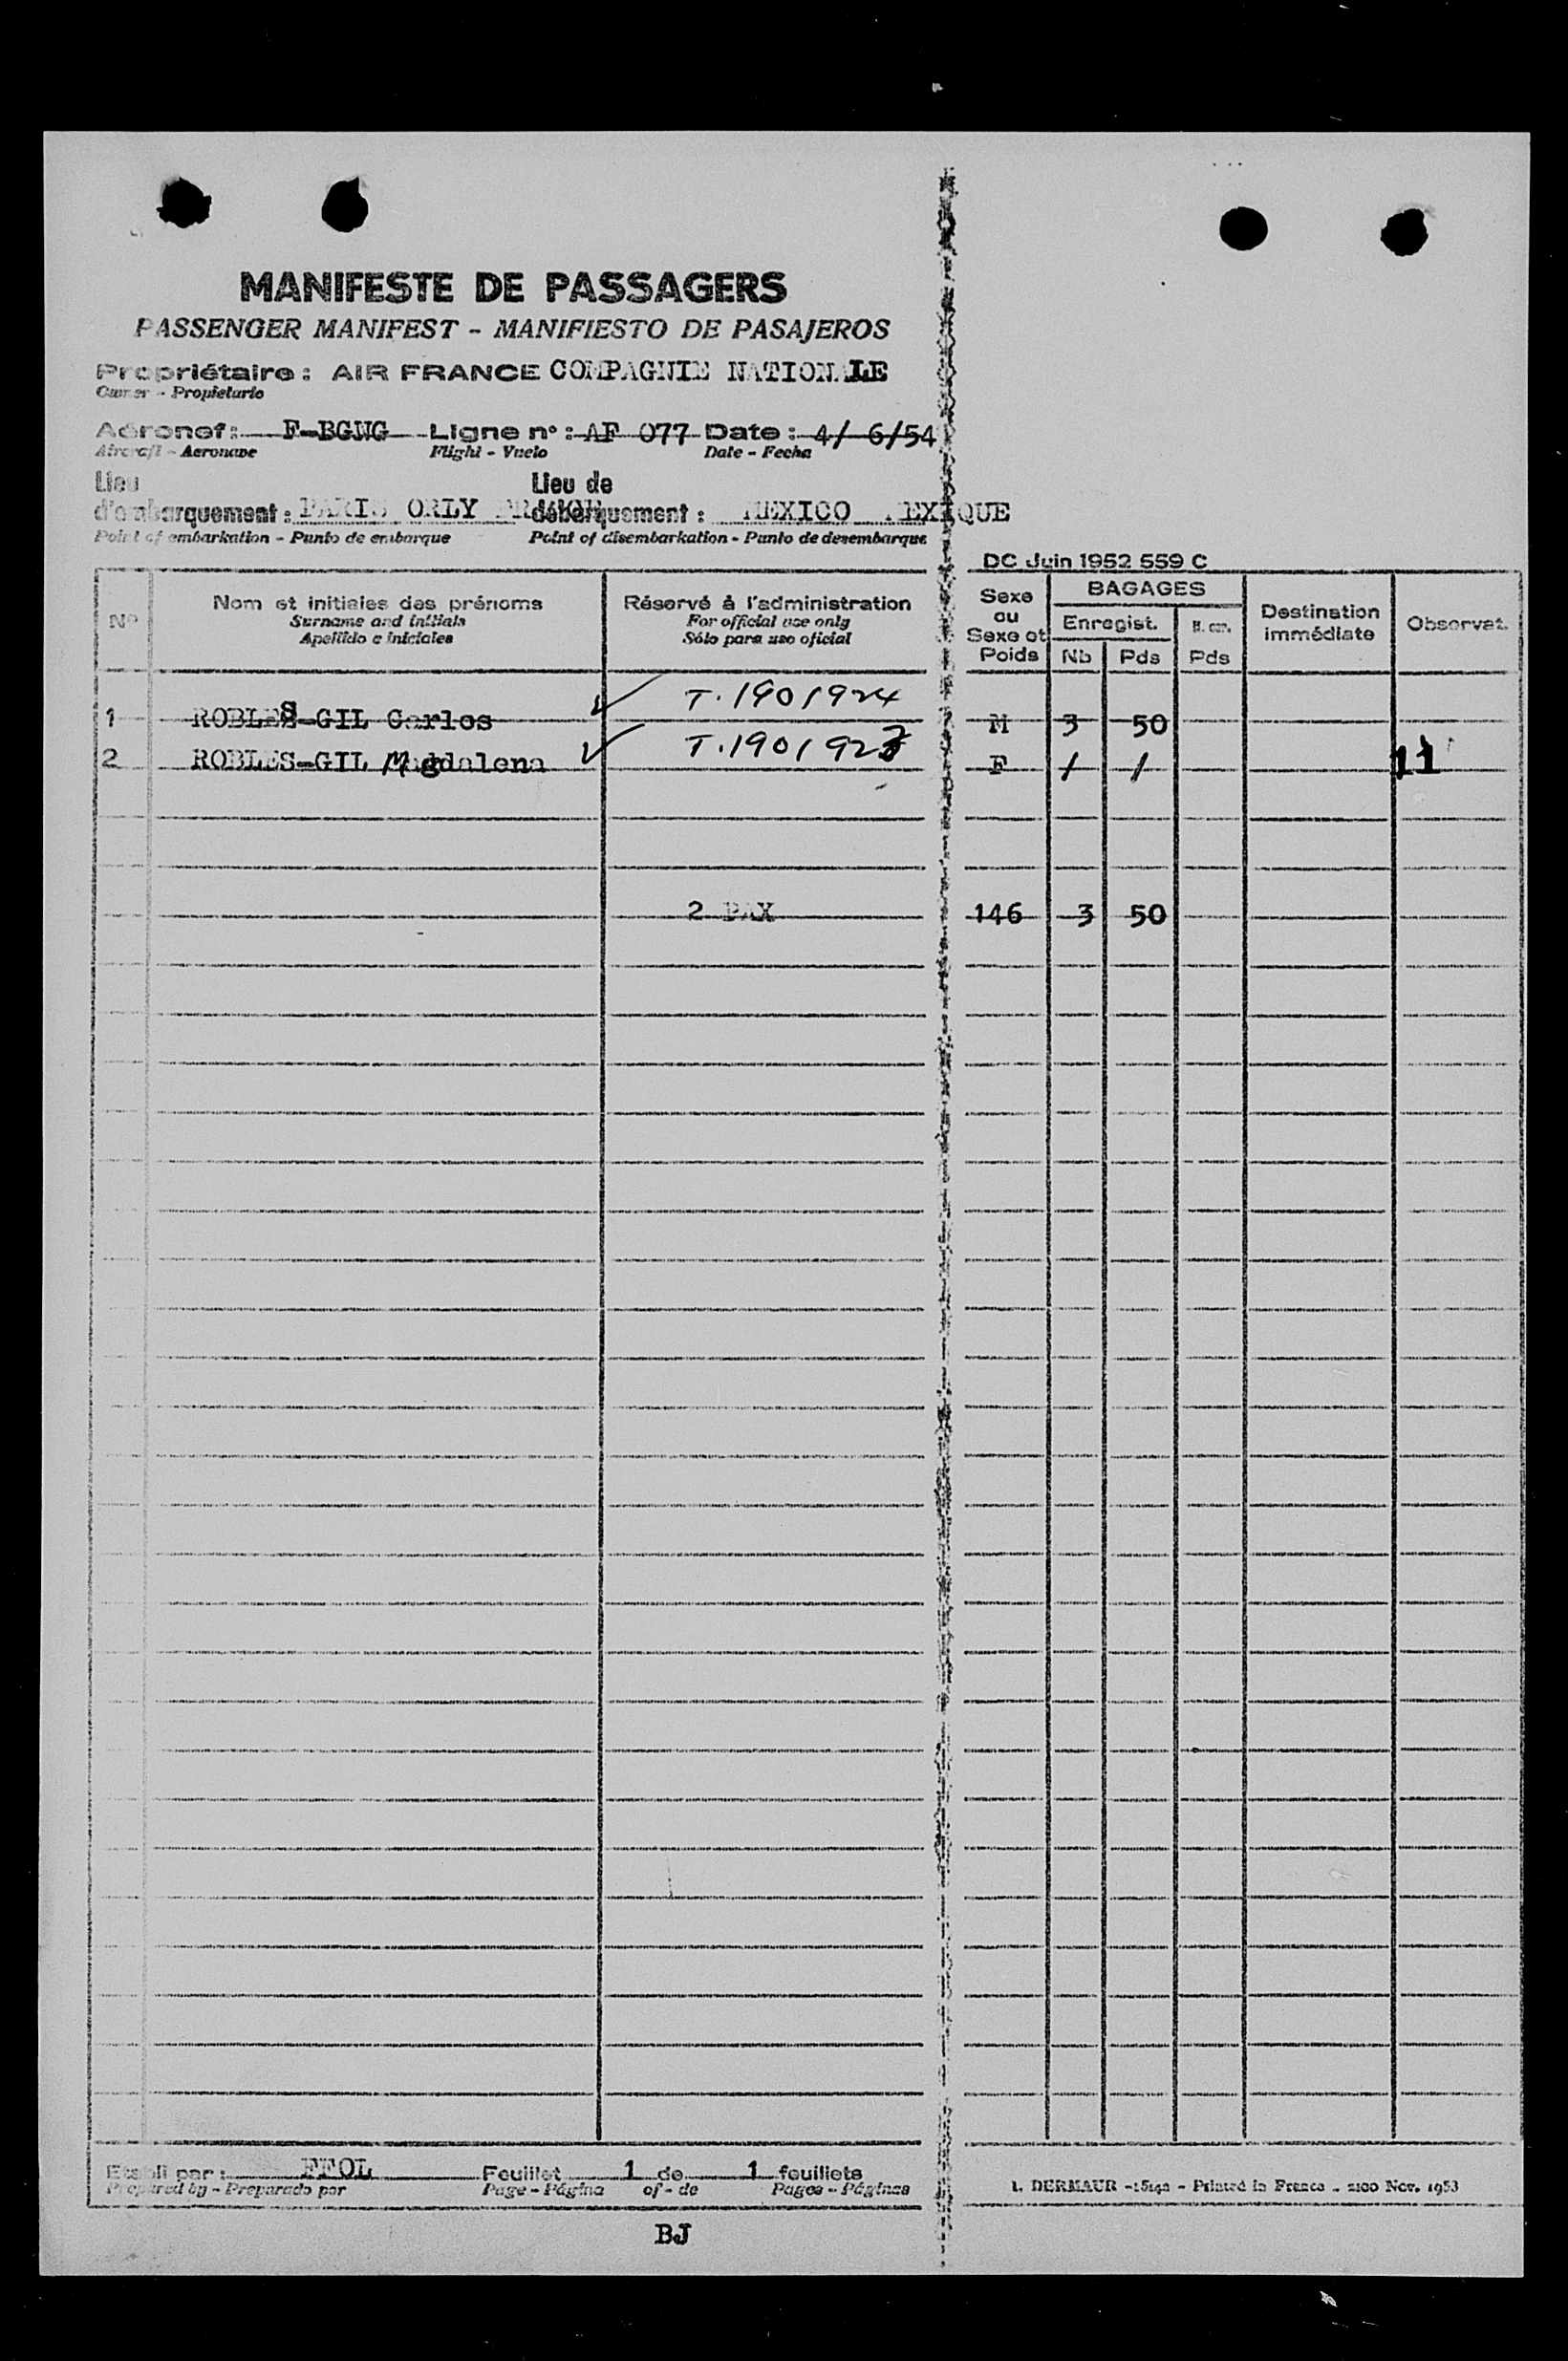 MANIFESTE DE PASSAGERS
PASSENGER MANIFEST - MANIFIESTO DE PASAJEROS
Propriétaire : AIR FRANCE COMPAGNIE NATIONALE
Owner - Propietario
Aéronef : F-BGNG Ligne n° : AF 077 Date : 4/ 6/54
Aircraft - Aeronave Flight - Vuelo Date - Fecha
Lieu Lieu de
d'embarquement : PARIS ORLY débarquement : MEXICO MEXIQUE
Point of embarkation - Punto de embarque Point of disembarkation - Punto de desembarque
DC Juin 1952 559 C
N° Nom et initiales des prénoms Réservé à l'administration Sexe ou Sexe et Poids BAGAGES Destination immédiate Observat.
Surname and initials For official use only Enregist.
Apellido e iniciales Sólo para uso oficial Nb Pds Pds
1 ROBLES-GIL Carlos T. 1901924 M 3 50
2 ROBLES-GIL Magdalena T. 1901923 F / / 11
2 PAX 146 3 50
Etabli par : FFOL Feuillet 1 de 1 feuillets
Prepared by - Preparado por Page - Página of - de Pages - Páginas
Printed in France - 2100 Nov. 1953
BJ